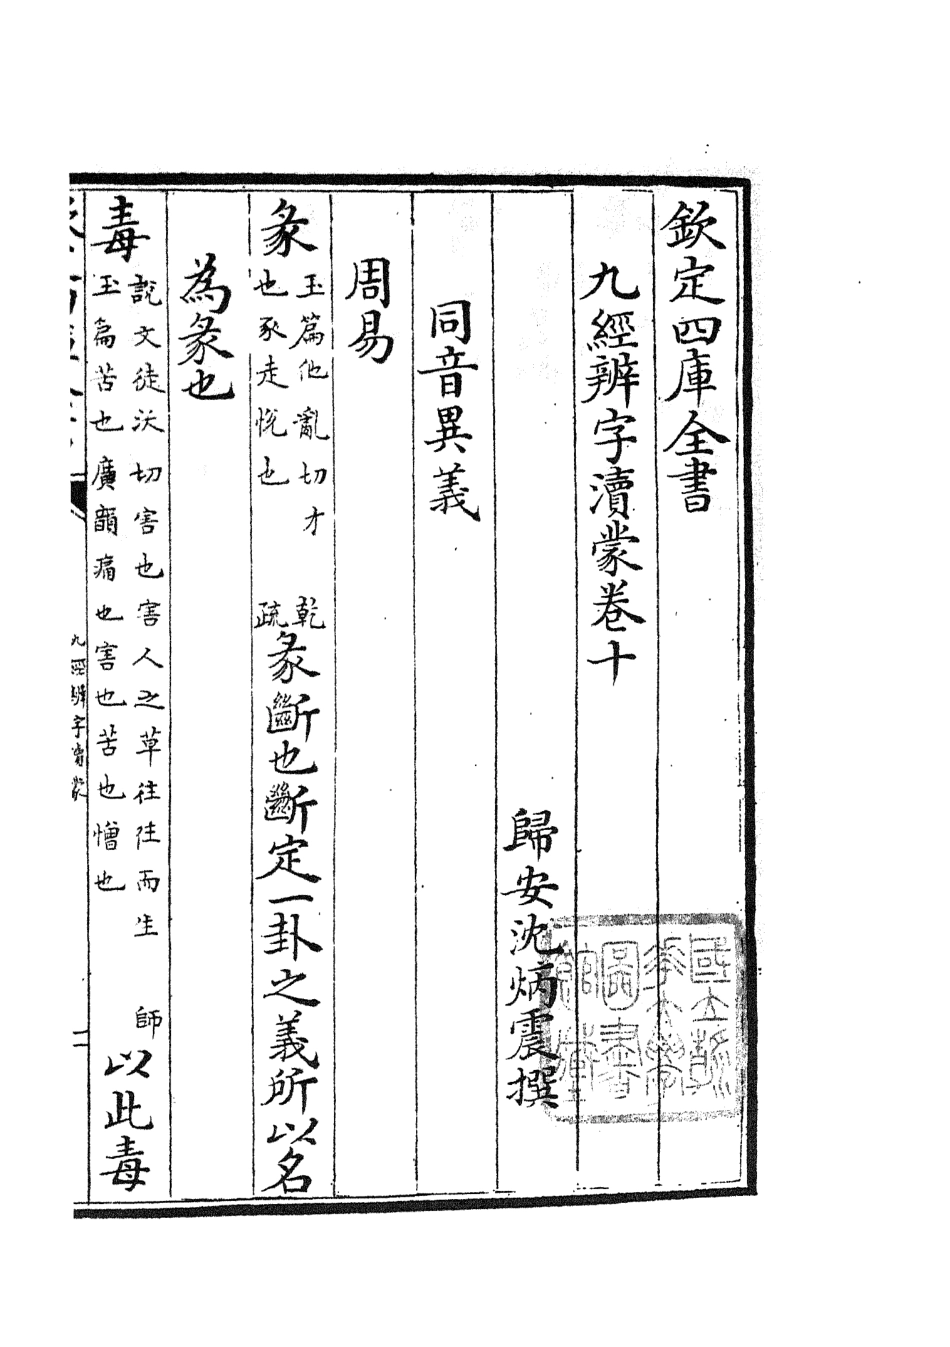 欽定四庫全書
九經辨字瀆蒙卷十
歸安沈炳震撰
同音異義
周易
彖玉篇他亂切才也豕走悦也 乾疏彖斷也斷定一卦之義所以名
為彖也
毒說文徒沃切害也害人之草往往而生玉篇苦也廣韻痛也害也苦也憎也 師以此毒
九經辨字瀆蒙